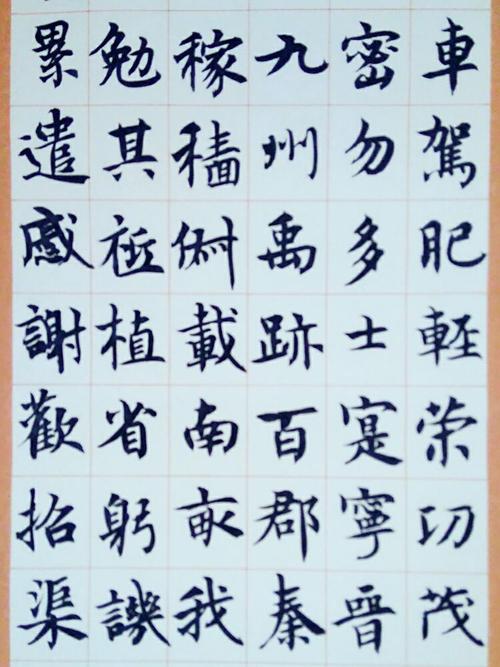 車駕肥軽荣功茂
密勿多士寔寧晉
九州禹跡百郡秦
稼穡俶載南畝我
勉其祗植省躬譏
累遣慼謝歡招渠